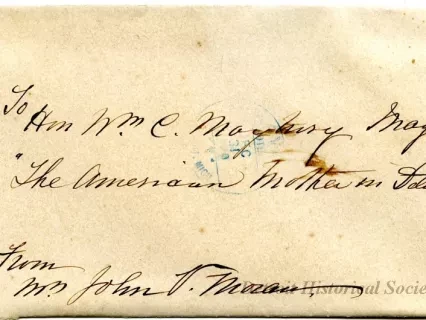 To
Hon Wm C. Maybury May
"The American Mother in
From
Mrs John V. Moran
Historical Socie